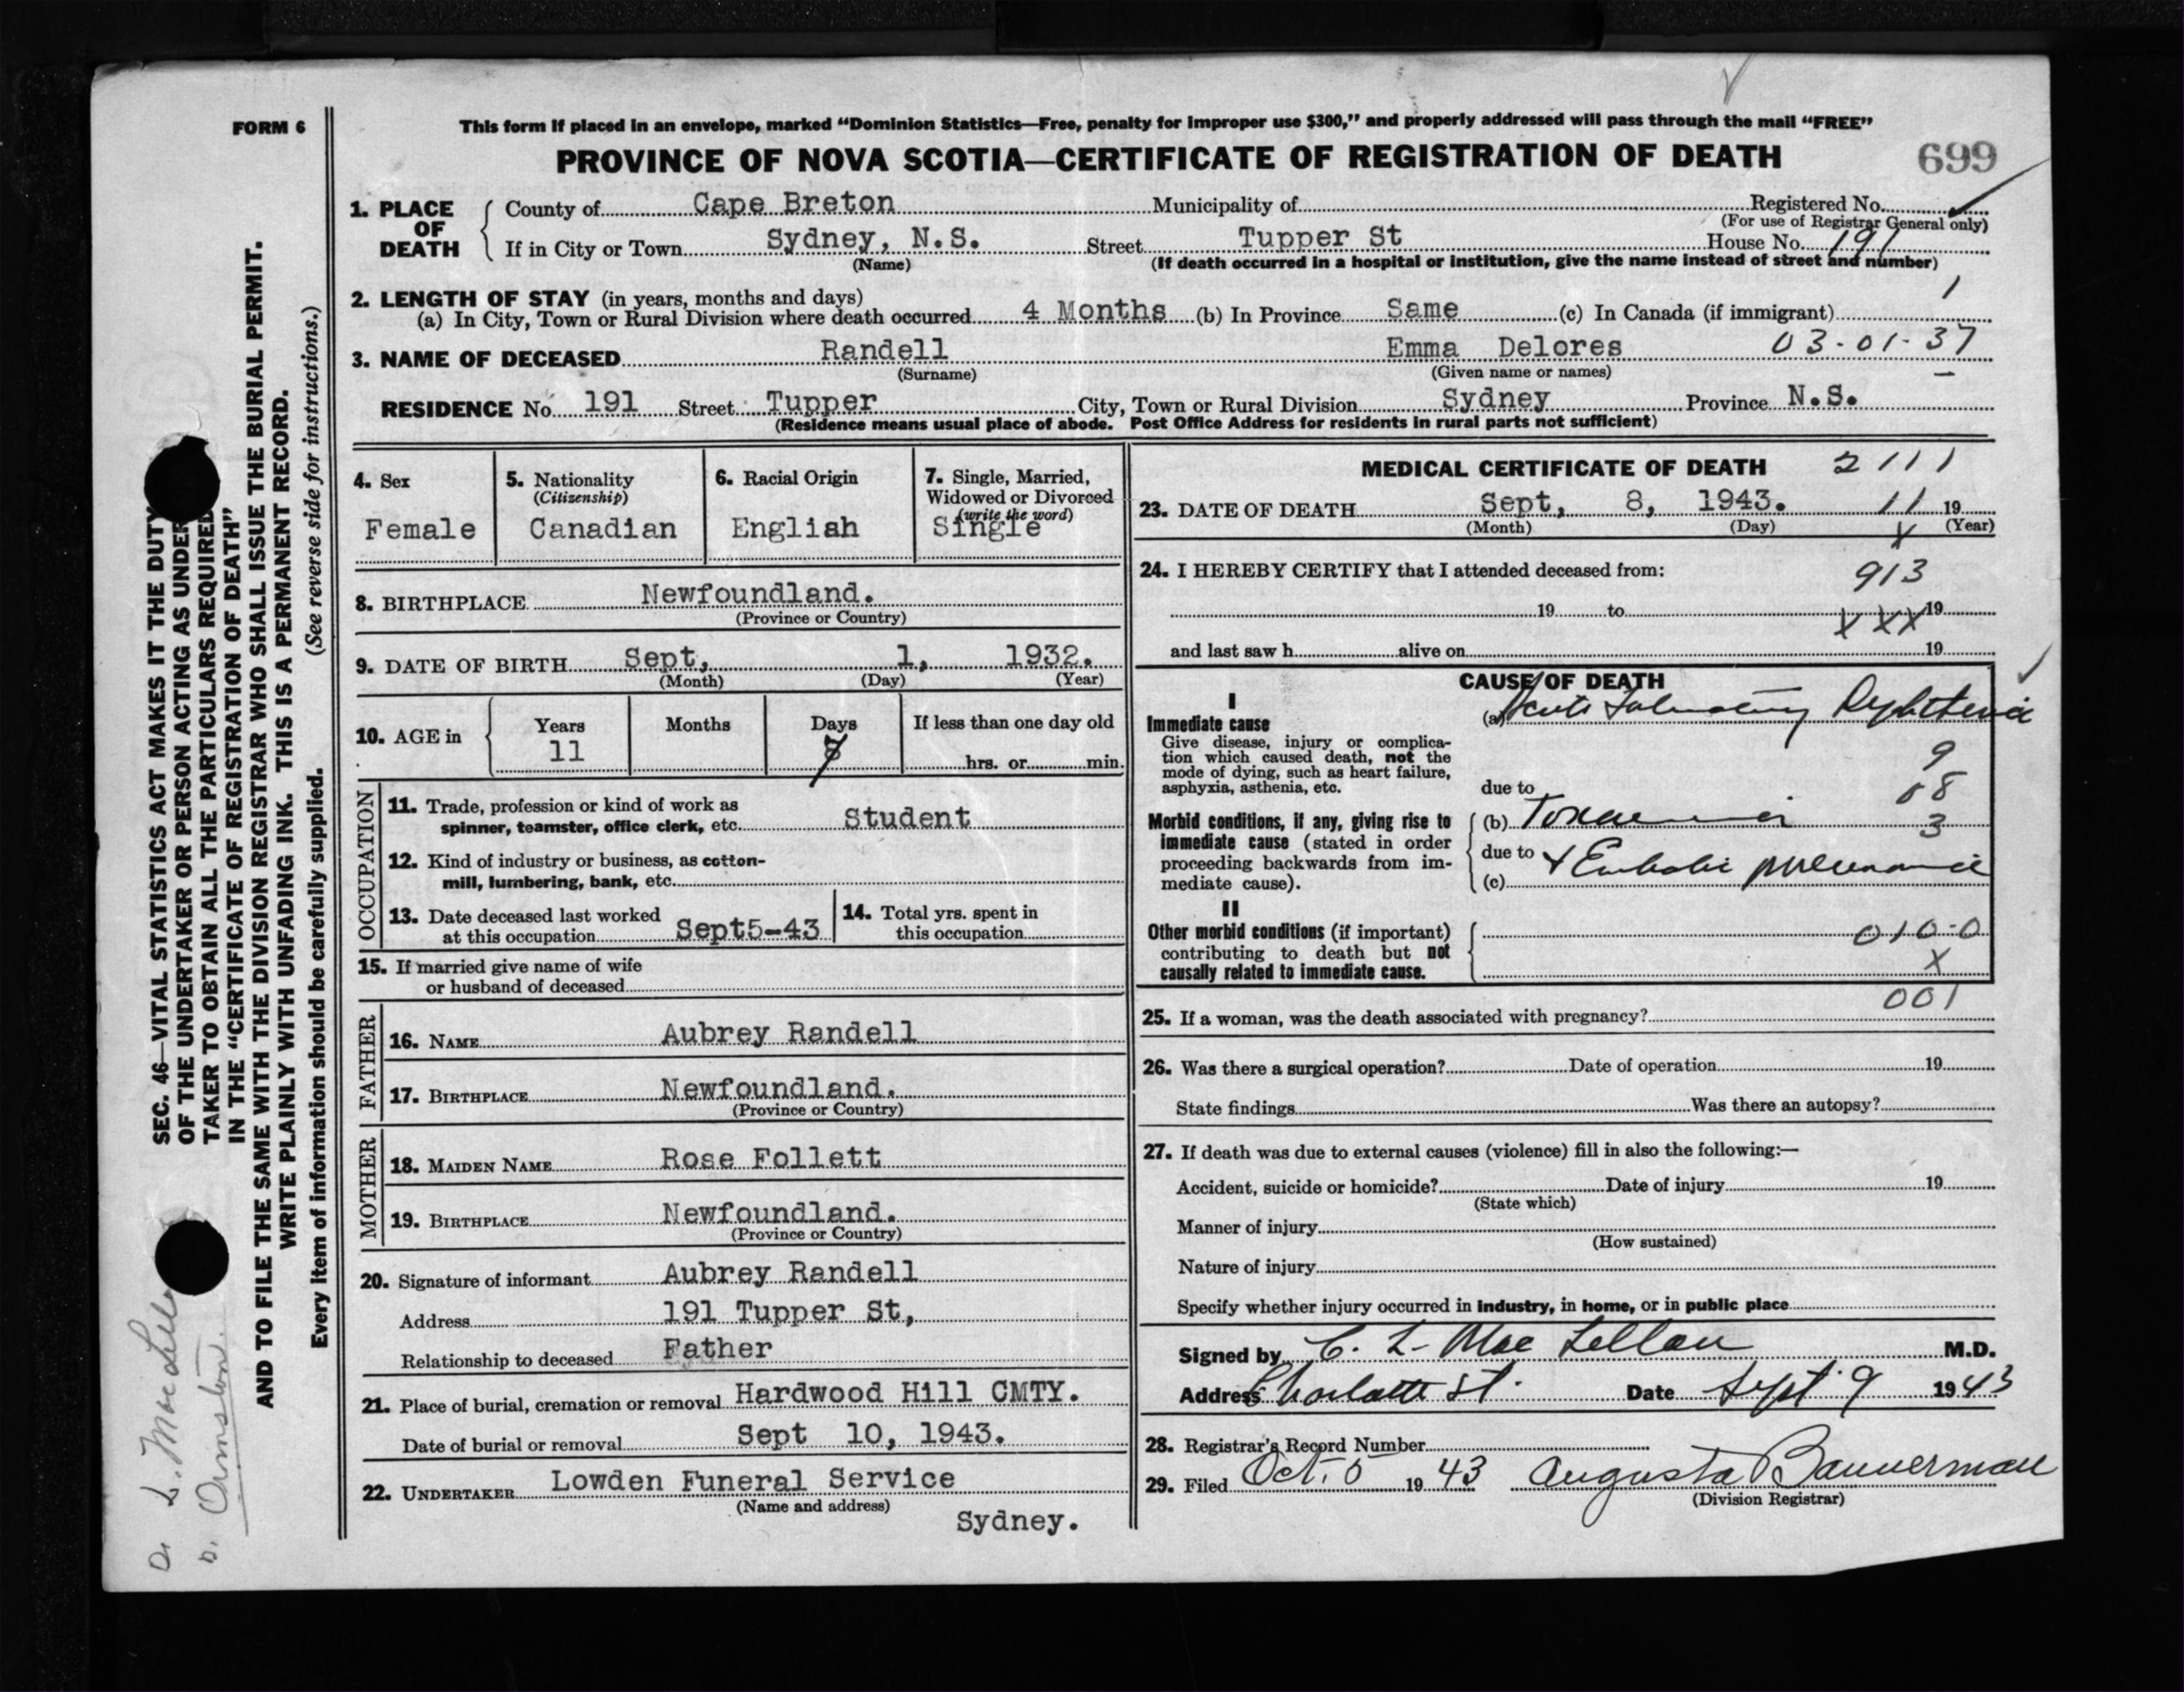 FORM 6
This form if placed in an envelope, marked “Dominion Statistics—Free, penalty for improper use $300,” and properly addressed will pass through the mail “FREE”
PROVINCE OF NOVA SCOTIA—CERTIFICATE OF REGISTRATION OF DEATH 699
1. PLACE OF DEATH
County of Cape Breton Municipality of Registered No.
(For use of Registrar General only)
If in City or Town Sydney, N.S. Street Tupper St House No. 191
(Name) (If death occurred in a hospital or institution, give the name instead of street and number)
2. LENGTH OF STAY (in years, months and days) 1
(a) In City, Town or Rural Division where death occurred 4 Months (b) In Province Same (c) In Canada (if immigrant)
3. NAME OF DECEASED Randell Emma Delores 03-01-37
(Surname) (Given name or names)
RESIDENCE No. 191 Street Tupper City, Town or Rural Division Sydney Province N.S.
(Residence means usual place of abode. Post Office Address for residents in rural parts not sufficient)
4. Sex
Female
5. Nationality
(Citizenship)
Canadian
6. Racial Origin
English
7. Single, Married,
Widowed or Divorced
(write the word)
Single
8. BIRTHPLACE Newfoundland.
(Province or Country)
9. DATE OF BIRTH Sept, 1, 1932.
(Month) (Day) (Year)
10. AGE in
Years Months Days If less than one day old
11 hrs. or min.
OCCUPATION
11. Trade, profession or kind of work as
spinner, teamster, office clerk, etc. Student
12. Kind of industry or business, as cotton-
mill, lumbering, bank, etc.
13. Date deceased last worked
at this occupation Sept5-43
14. Total yrs. spent in
this occupation
15. If married give name of wife
or husband of deceased
FATHER
16. NAME Aubrey Randell
17. BIRTHPLACE Newfoundland.
(Province or Country)
MOTHER
18. MAIDEN NAME Rose Follett
19. BIRTHPLACE Newfoundland.
(Province or Country)
20. Signature of informant Aubrey Randell
Address 191 Tupper St,
Relationship to deceased Father
21. Place of burial, cremation or removal Hardwood Hill CMTY.
Date of burial or removal Sept 10, 1943.
22. UNDERTAKER Lowden Funeral Service
(Name and address)
Sydney.
MEDICAL CERTIFICATE OF DEATH 2111
23. DATE OF DEATH Sept, 8, 1943. 11 19
(Month) (Day) (Year)
X
24. I HEREBY CERTIFY that I attended deceased from: 913
19 to 19
XXX
and last saw h alive on 19
CAUSE OF DEATH
I
Immediate cause
Give disease, injury or complica-
tion which caused death, not the
mode of dying, such as heart failure,
asphyxia, asthenia, etc.
(a) Acute Dyphtheria
9
08
due to
Morbid conditions, if any, giving rise to
immediate cause (stated in order
proceeding backwards from im-
mediate cause).
(b) Toxaemia 3
due to
(c) + Embolic pneumonia
II
Other morbid conditions (if important)
contributing to death but not
causally related to immediate cause.
010-0
X
001
25. If a woman, was the death associated with pregnancy?
26. Was there a surgical operation? Date of operation 19
State findings Was there an autopsy?
27. If death was due to external causes (violence) fill in also the following:—
Accident, suicide or homicide? Date of injury 19
(State which)
Manner of injury
(How sustained)
Nature of injury
Specify whether injury occurred in industry, in home, or in public place
Signed by C. L- MacLellan M.D.
Address Charlotte St. Date Sept. 9 1943
28. Registrar's Record Number
29. Filed Oct. 5 1943 Augusta Bannerman
(Division Registrar)
SEC. 46—VITAL STATISTICS ACT MAKES IT THE DUTY
OF THE UNDERTAKER OR PERSON ACTING AS UNDER
TAKER TO OBTAIN ALL THE PARTICULARS REQUIRED
IN THE “CERTIFICATE OF REGISTRATION OF DEATH”
AND TO FILE THE SAME WITH THE DIVISION REGISTRAR WHO SHALL ISSUE THE BURIAL PERMIT.
WRITE PLAINLY WITH UNFADING INK. THIS IS A PERMANENT RECORD.
Every item of information should be carefully supplied. (See reverse side for instructions.)
D. L. MacLell
D. Ormston.